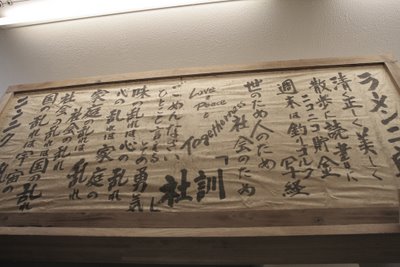 ラーメン二郎
清正く美しく
散歩に読書に
ニコニコ貯金
週末は釣りゴルフ写経
世のため人のため
社会のため
Love &
Peace
&
Togetherness
「社訓」
ごめんなさい
ひとこと言える
その勇気
味の乱れは心の乱れ
心の乱れは家庭の乱れ
家庭の乱れは社会の乱れ
社会の乱れは国の乱れ
国の乱れは宇宙の乱れ
ニンニク